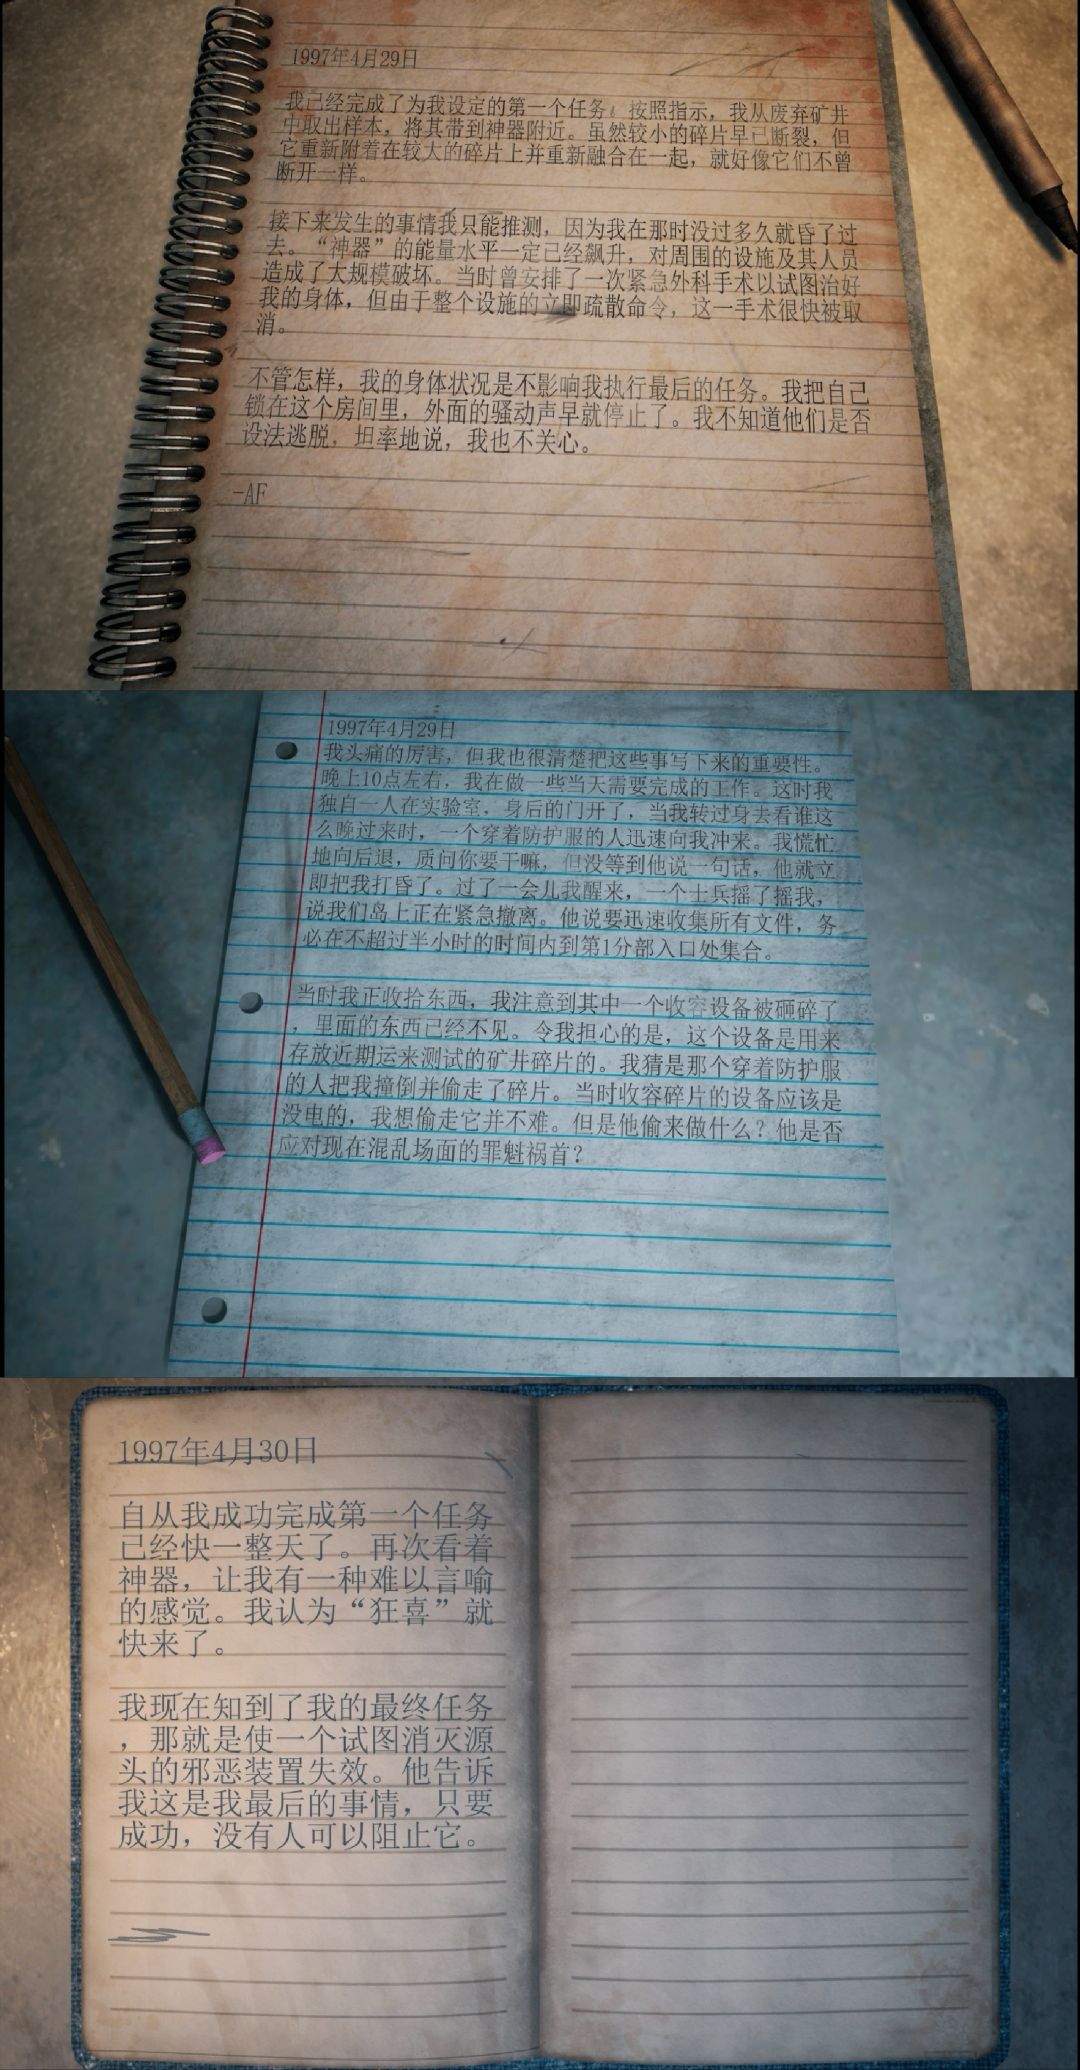 1997年4月29日
我已经完成了为我设定的第一个任务。按照指示，我从废弃矿井
中取出样本，将其带到神器附近。虽然较小的碎片早已断裂，但
它重新附着在较大的碎片上并重新融合在一起，就好像它们不曾
断开一样。
接下来发生的事情我只能推测，因为我在那时没过多久就昏了过
去。“神器”的能量水平一定已经飙升，对周围的设施及其人员
造成了大规模破坏。当时曾安排了一次紧急外科手术以试图治好
我的身体，但由于整个设施的立即疏散命令，这一手术很快被取
消。
不管怎样，我的身体状况是不影响我执行最后的任务。我把自己
锁在这个房间里，外面的骚动声早就停止了。我不知道他们是否
设法逃脱，坦率地说，我也不关心。
-AF
1997年4月29日
我头痛的厉害，但我也很清楚把这些事写下来的重要性。
晚上10点左右，我在做一些当天需要完成的工作。这时我
独自一人在实验室，身后的门开了，当我转过身去看谁这
么晚过来时，一个穿着防护服的人迅速向我冲来。我慌忙
地向后退，质问你要干嘛，但没等到他说一句话，他就立
即把我打昏了。过了一会儿我醒来，一个士兵摇了摇我，
说我们岛上正在紧急撤离。他说要迅速收集所有文件，务
必在不超过半小时的时间内到第1分部入口处集合。
当时我正收拾东西，我注意到其中一个收容设备被砸碎了
，里面的东西已经不见。令我担心的是，这个设备是用来
存放近期运来测试的矿井碎片的。我猜是那个穿着防护服
的人把我撞倒并偷走了碎片。当时收容碎片的设备应该是
没电的，我想偷走它并不难。但是他偷来做什么？他是否
应对现在混乱场面的罪魁祸首？
1997年4月30日
自从我成功完成第一个任务
已经快一整天了。再次看着
神器，让我有一种难以言喻
的感觉。我认为“狂喜”就
快来了。
我现在知到了我的最终任务
，那就是使一个试图消灭源
头的邪恶装置失效。他告诉
我这是我最后的事情，只要
成功，没有人可以阻止它。